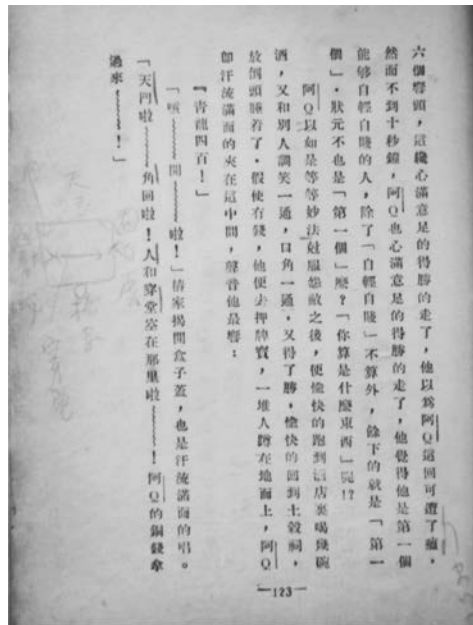 六個響頭，這纔心滿意足的得勝的走了，他以爲阿Q這回可遭了瘟，
然而不到十秒鐘，阿Q也心滿意足的得勝的走了，他覺得他是第一個
能够自輕自賤的人，除了「自輕自賤」不算外，餘下的就是「第一
個」。狀元不也是「第一個」麼？「你算是什麼東西」呢!?
阿Q以如是等等妙法尅服怨敵之後，便愉快的跑到酒店裏喝幾碗
酒，又和別人調笑一通，口角一通，又得了勝，愉快的回到土穀祠，
放倒頭睡着了。假使有錢，他便去押牌寶，一堆人蹲在地面上，阿Q
卽汗流滿面的夾在這中間，聲音他最響：
「青龍四百！」
「咳～～～開～～～啦！」樁家揭開盒子蓋，也是汗流滿面的唱。
「天門啦～～～角回啦！人和穿堂空在那里啦～～～！阿Q的銅錢拿
過來～～～！」
—123—